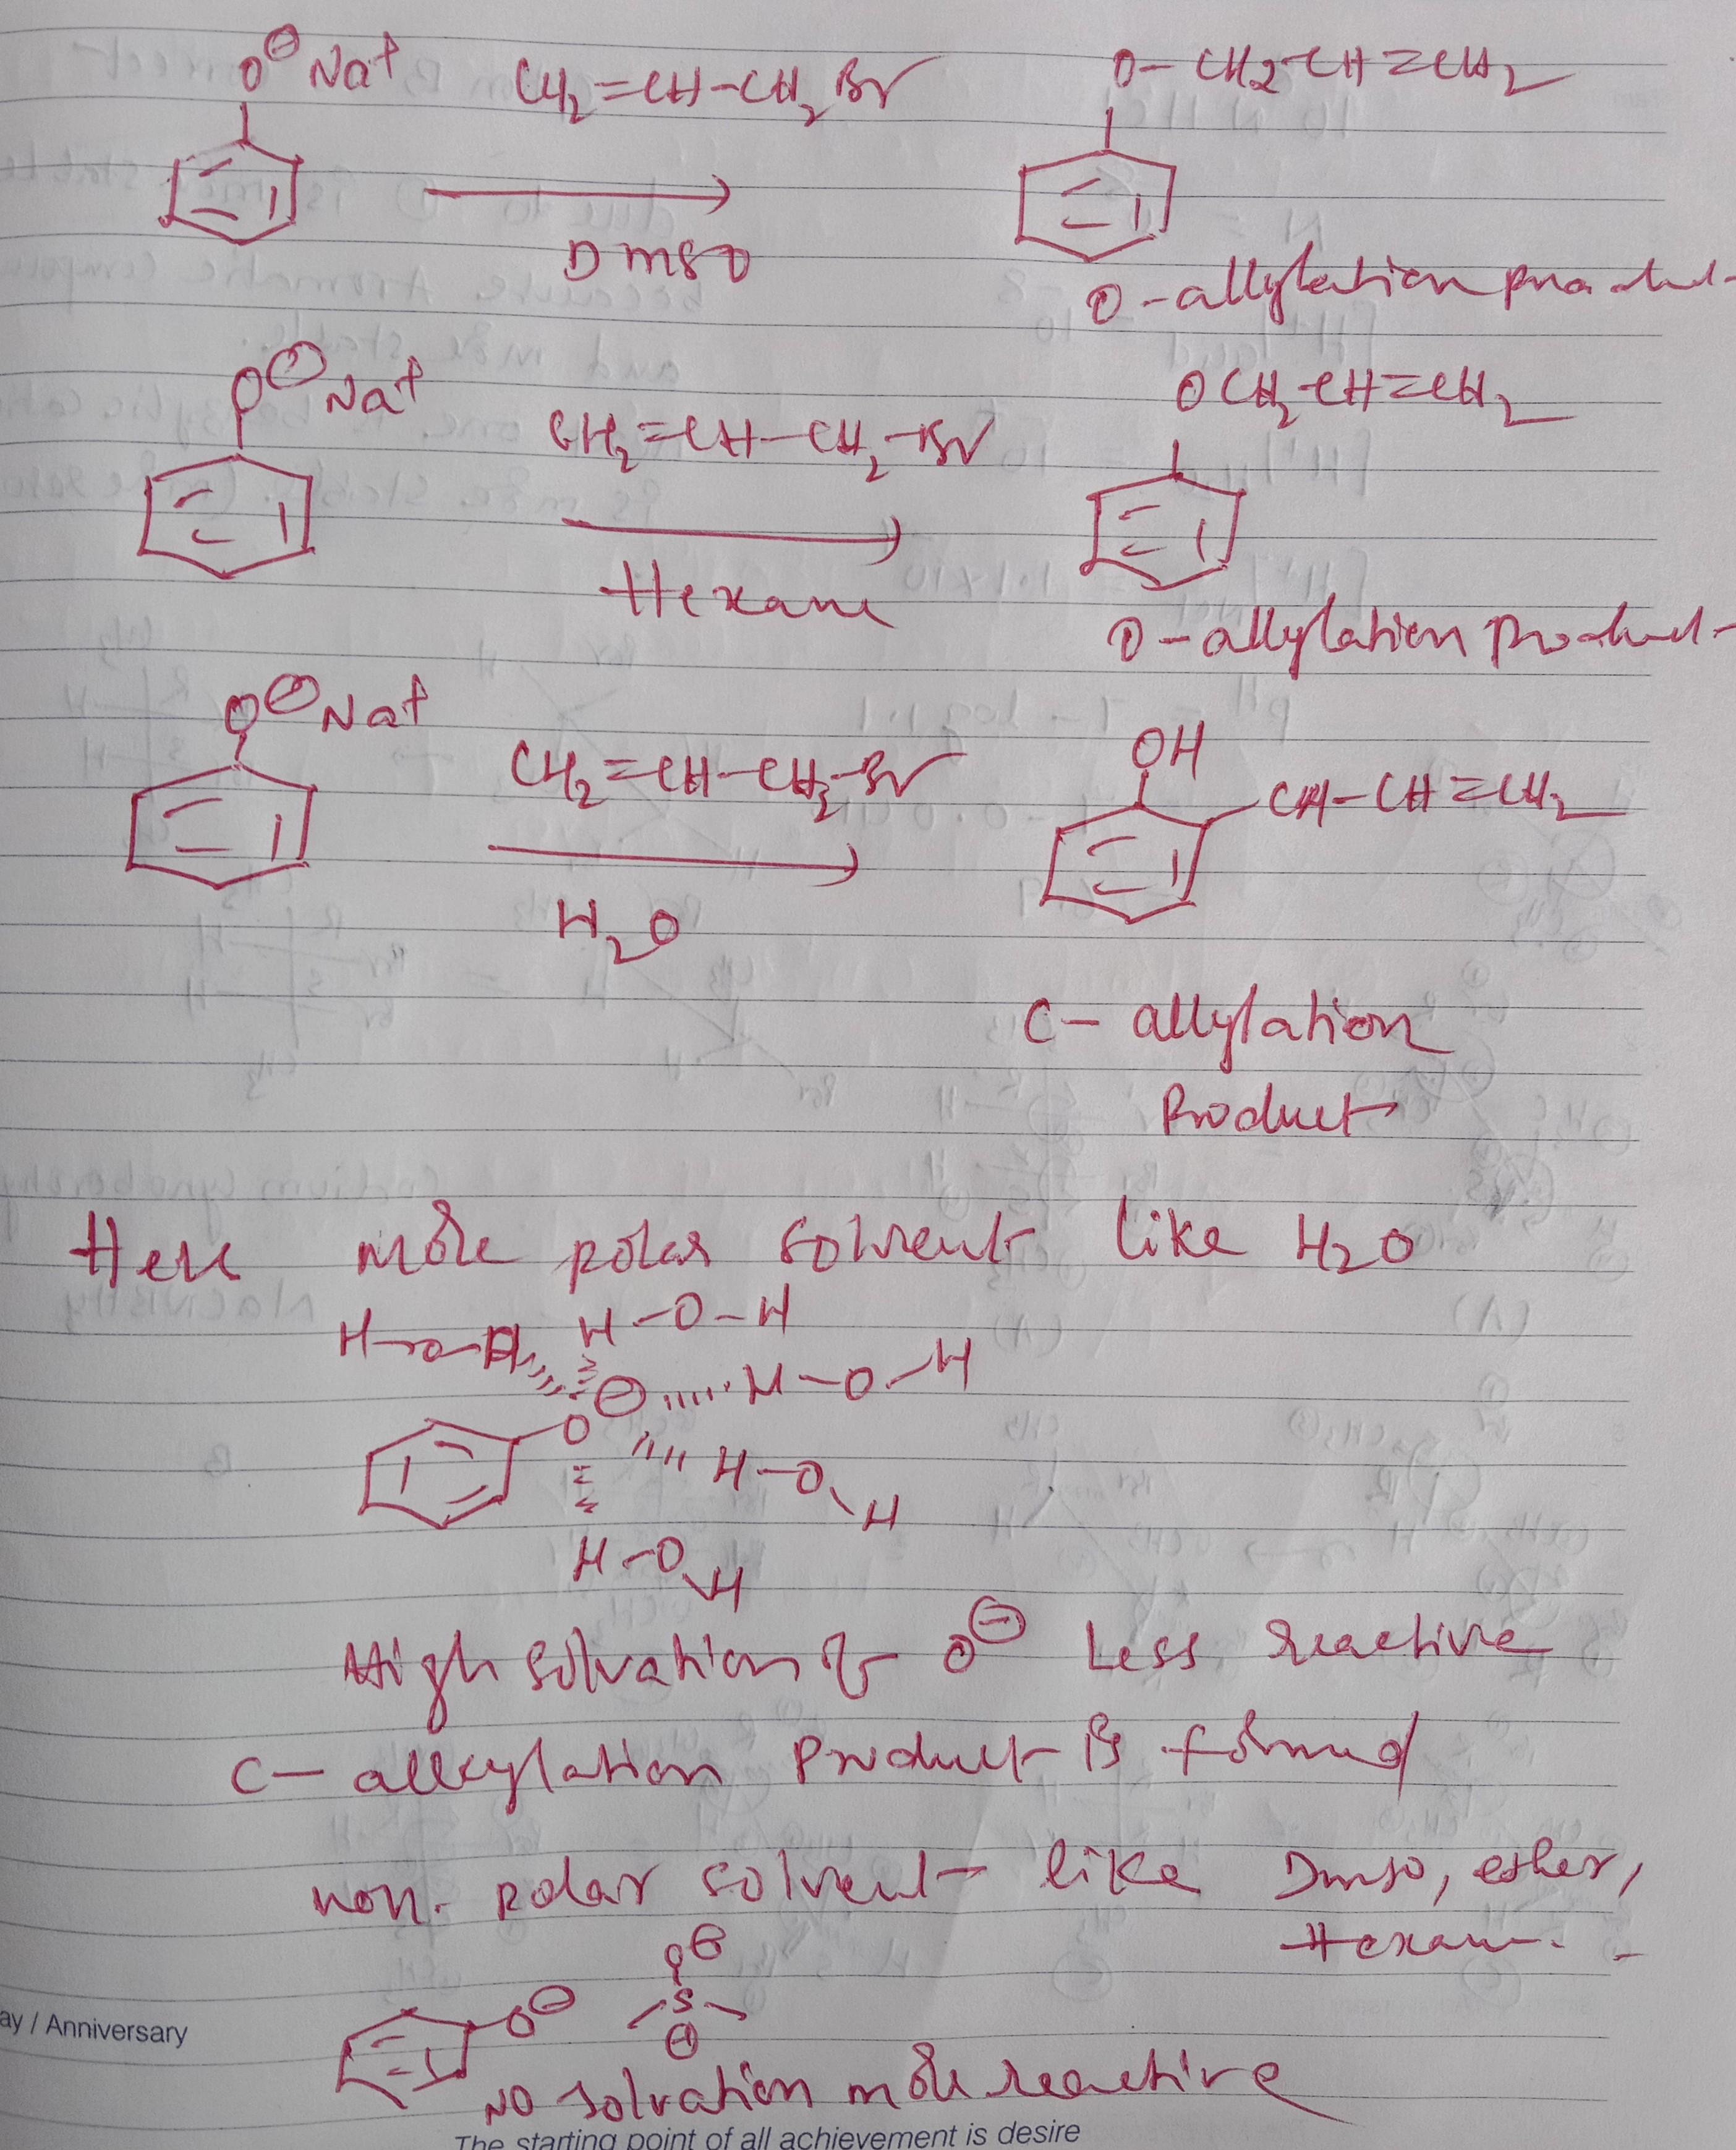 O⊖ Na+ CH2=CH-CH2Br O-CH2-CH=CH2
DMSO
O-allylation product
O⊖ Na+ CH2=CH-CH2-Br OCH2-CH=CH2
Hexane
O-allylation product
O⊖ Na+ CH2=CH-CH2-Br OH
CH-CH=CH2
H2O
C- allylation
Product
Here more polar solvent like H2O
H-O-H H-O-H
⊖ H-O-H
O
H-O
H
H-O
H
High solvation of O⊖ Less reactive
C- alkylation Product is formed
non. polar solvent like Dmso, ether,
Hexane.
O⊖
O⊖ S
⊕
NO solvation more reactive
ay / Anniversary
The starting point of all achievement is desire